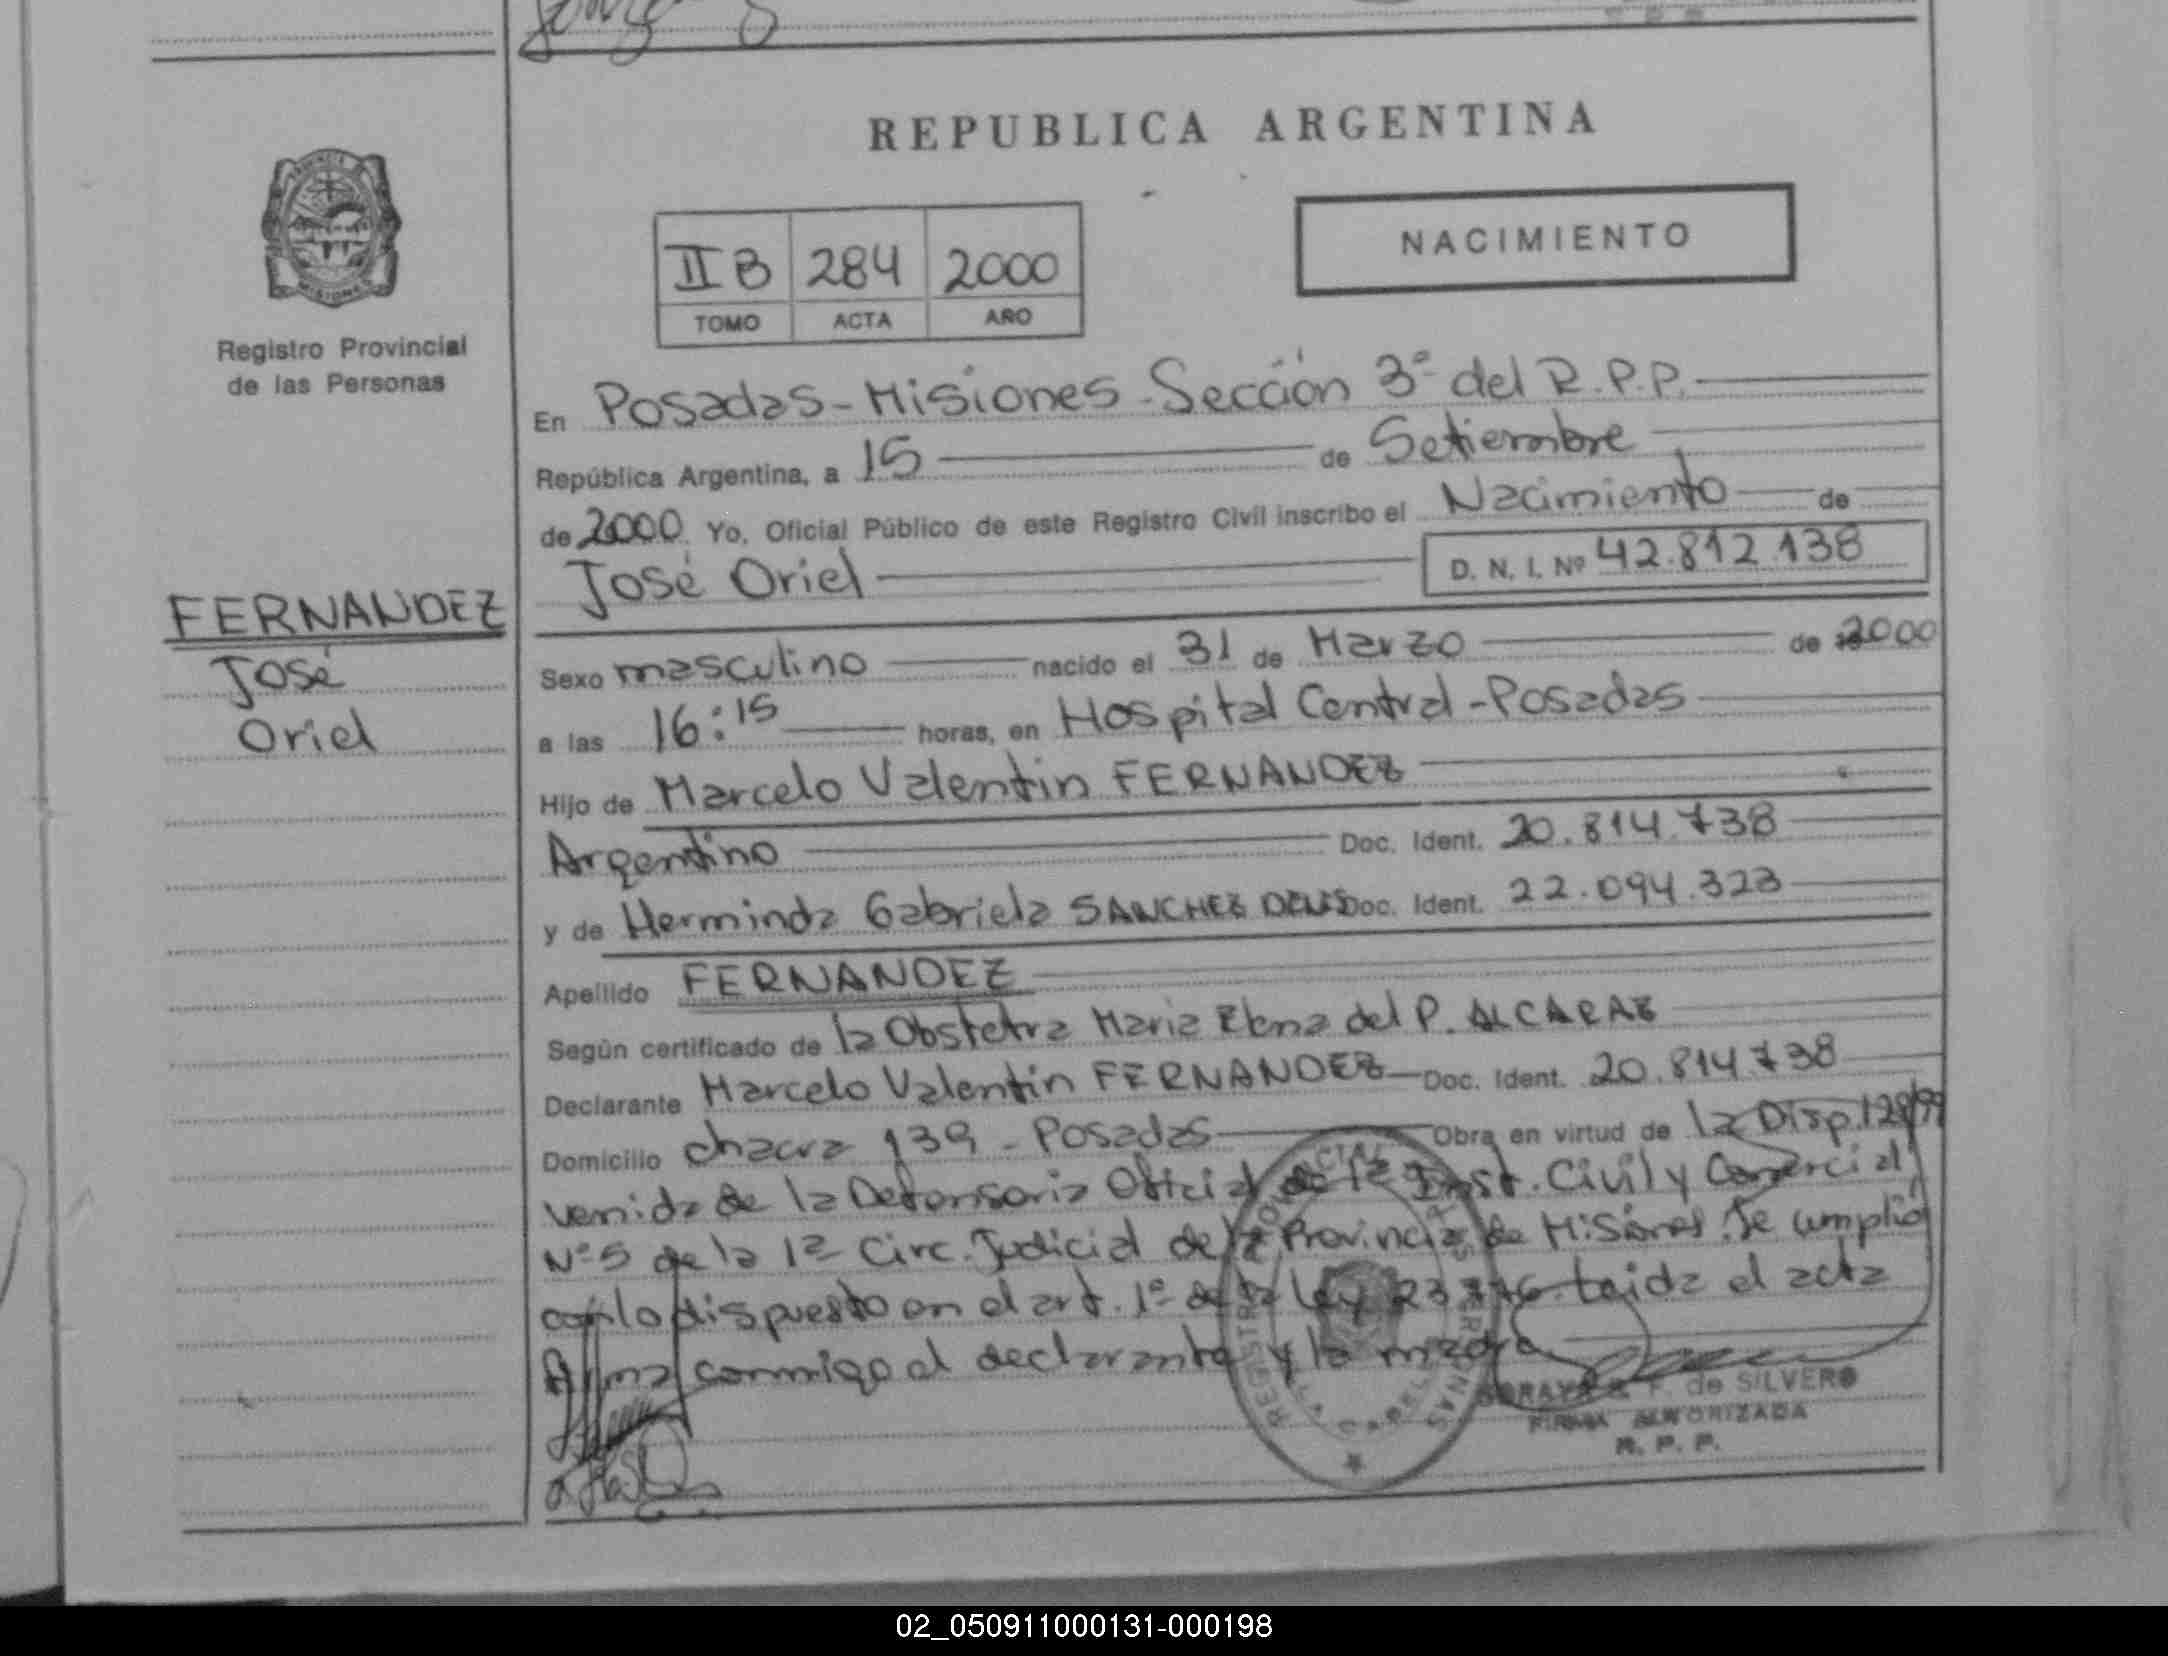 REPUBLICA ARGENTINA
PROVINCIA
MISIONES
Registro Provincial
de las Personas
II B 284 2000
TOMO ACTA AÑO
NACIMIENTO
En Posadas-Misiones-Sección 3ª del R.P.P.
República Argentina, a 15 de Setiembre
de 2000. Yo, Oficial Público de este Registro Civil inscribo el Nacimiento de
José Oriel D. N. I. Nº 42.812.138
FERNANDEZ
José
Oriel
Sexo masculino nacido el 31 de Marzo de 2000
a las 16:15 horas, en Hospital Central-Posadas
Hijo de Marcelo Valentin FERNANDEZ
Argentino Doc. Ident. 20.814.738
y de Herminda Gabriela SANCHEZ Doc. Ident. 22.094.323
Apellido FERNANDEZ
Según certificado de la Obstetra Maria Elena del P. ALCARAZ
Declarante Marcelo Valentin FERNANDEZ Doc. Ident. 20.814.738
Domicilio chacra 139 - Posadas Obra en virtud de la Disp. 128/99
venida de la Defensoria Oficial de 1ª Inst. Civil y Comercial
Nº 5 de la 1ª Circ. Judicial de la Provincia de Misiones. Se cumplió
con lo dispuesto en el art. 1º de la Ley 23.776. Leida el acta
firma conmigo el declarante y la madre
F. de SILVERO
FIRMA AUTORIZADA
R. P. P.
02_050911000131-000198